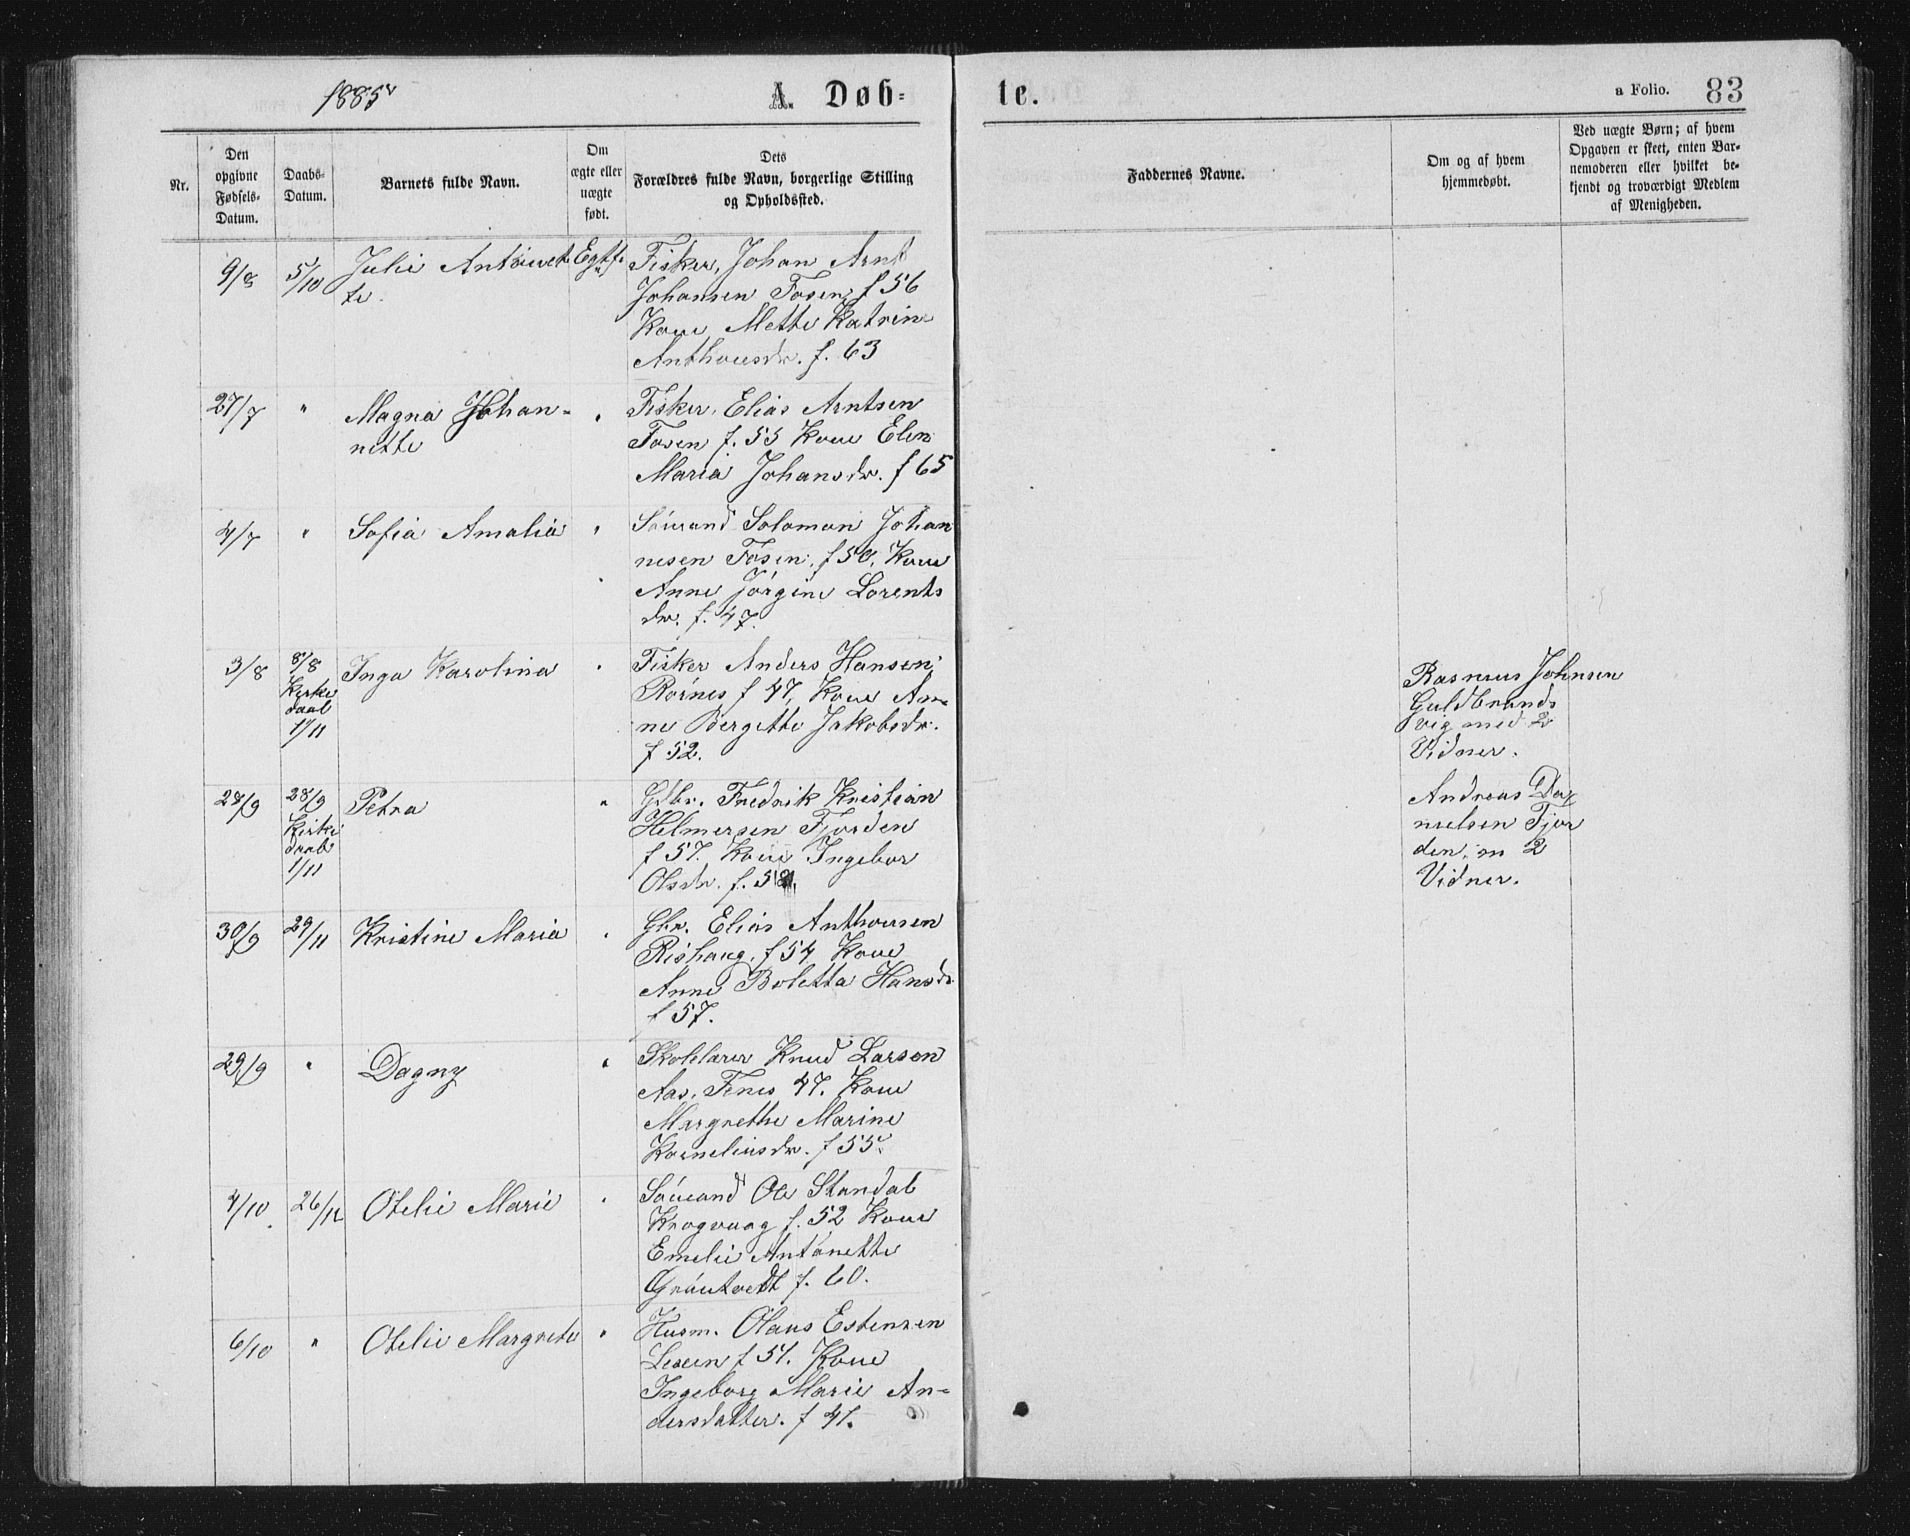 1885
A. Døb-
te.
a Folio. 83
Nr.
Den
opgivne
Fødsels-
Datum.
Daabs-
Datum.
Barnets fulde Navn.
Om
ægte eller
uægte
født.
Dets
Forældres fulde Navn, borgerlige Stilling
og Opholdssted.
Faddernes Navne.
Om og af hvem
hjemmedøbt.
Ved uægte Børn; af hvem
Opgaven er skeet, enten Bar-
nemoderen eller hvilket be-
kjendt og troværdigt Medlem
af Menigheden.
9/8 5/10 Julie Antonet
te. Egtef. Fisker, Johan Arnt
Johansen Fosen, f 56
Kone Mette Katrine
Anthonsdr. f. 63
27/7 " Magna Johan-
nette " Fisker, Elias Arntsen
Fosen f. 55 Kone Elen
Maria Johansdr. f 65
4/7 " Sofia Amalia " Sömand Solomon Johan
nesen Fosen, f 50, Kone
Anne Jörgine Lorents
dr. f. 47.
3/8 8/8
Kirke
daab
1/11 Inga Karolina " Fisker Anders Hansen
Rörnes f 47, Kone An-
ne Bergitte Jakobsdr.
f 52.
Rasmus Johnsen
Guldbrands
vig med 2
Vidner.
28/9 28/9
Kirke
daab
1/11 Petra " Gdbr. Fredrik Kristian
Helmersen Fjorden
f 57. Kone Ingebor
Olsdr. f. 58
Andreas Da
nielsen Fjor
den, m 2
Vidner.
30/9 29/11 Kristine Maria " Gbr. Elias Anthonsen
Rishaug, f 54 Kone
Anne Boletta Hansdr
f 57.
29/9 " Dagny " Skolelærer Knud Larsen
Aas, Fenes 47. Kone
Margrethe Marine
Korneliusdr. f 55.
4/10 26/11 Otelie Marie " Sömand Ole Standal
Krogvaag f. 52 Kone
Emelie Antonette
Gröntvedt f. 60.
6/10 " Otelie Margrete " Husm. Olaus Estensen
f 54. Kone
Ingeborg Marie An-
dersdatter. f 41.